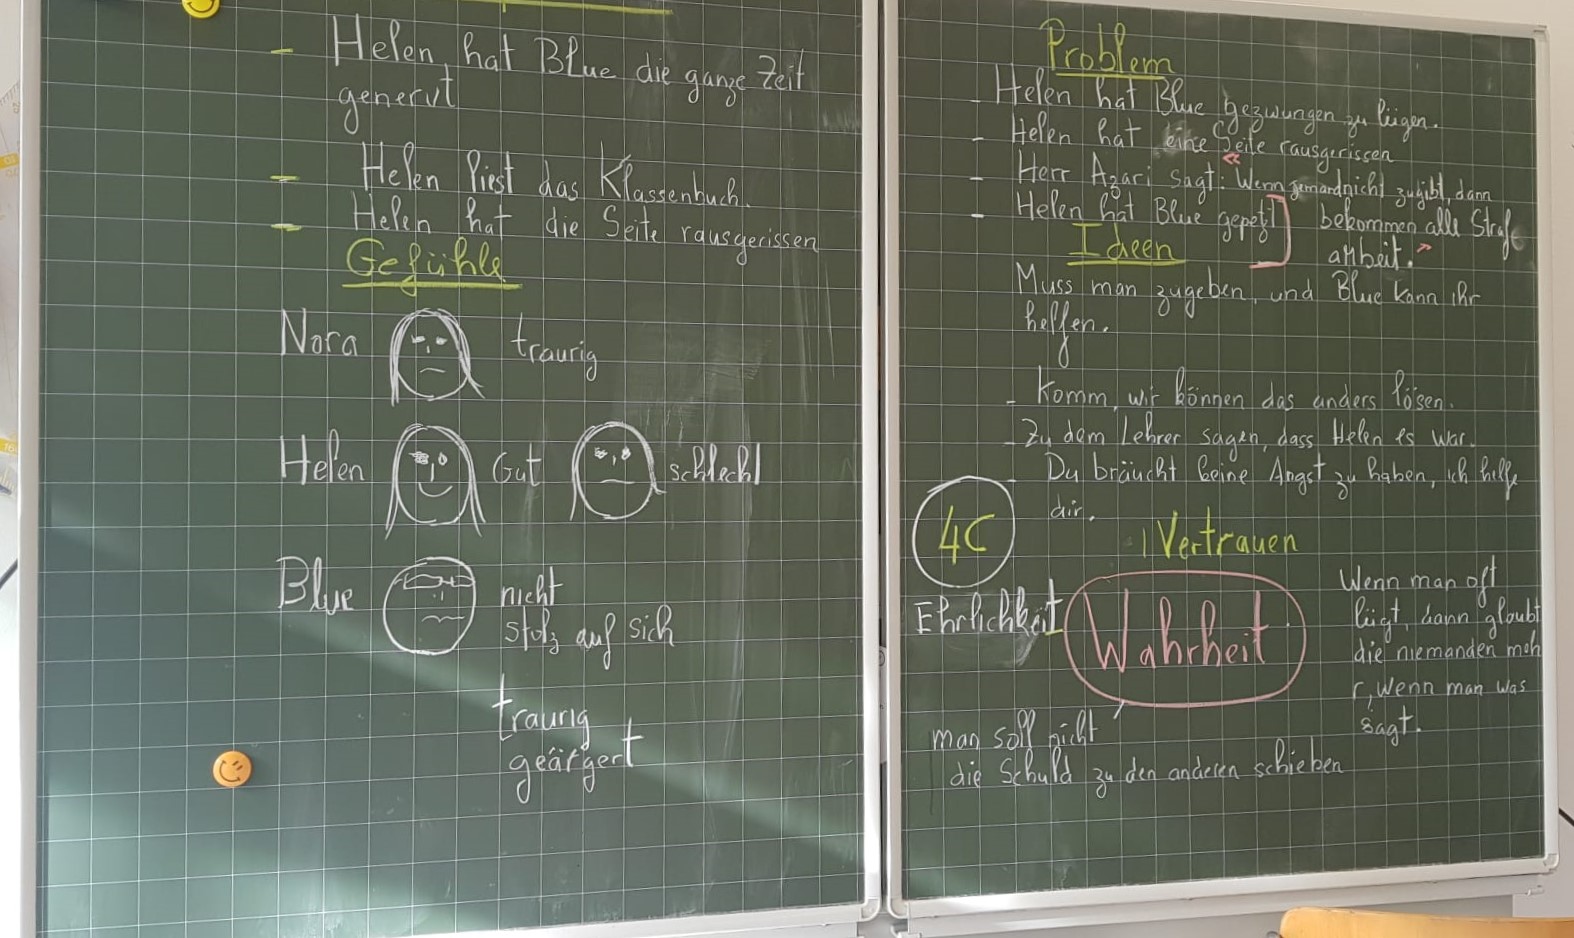 - Helen hat Blue die ganze Zeit
genervt
- Helen liest das Klassenbuch.
- Helen hat die Seite rausgerissen
Gefühle
Nora traurig
Helen Gut schlecht
Blue nicht
stolz auf sich
traurig
geärgert
Problem
- Helen hat Blue gezwungen zu lügen.
- Helen hat eine Seite rausgerissen
- Herr Azari sagt: "Wenn jemand nicht zugibt, dann
bekommen alle Straf
arbeit."
- Helen hat Blue gepetzt
Ideen
Muss man zugeben, und Blue kann ihr
helfen.
- Komm, wir können das anders lösen.
- Zu dem Lehrer sagen, dass Helen es war.
- Du bräucht keine Angst zu haben, ich helfe
dir.
4C
Vertrauen
Ehrlichkeit
Wahrheit
Wenn man oft
lügt, dann glaubt
die niemanden meh
r, wenn man was
sagt.
man soll nicht
die Schuld zu den anderen schieben